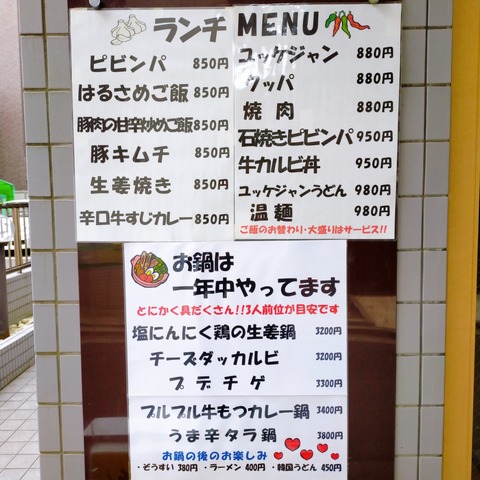 ランチ MENU
ピビンパ 850円
はるさめご飯 850円
豚肉の甘辛炒めご飯 850円
豚キムチ 850円
生姜焼き 850円
辛口牛すじカレー 850円
ユッケジャン 880円
クッパ 880円
焼肉 880円
石焼きピビンパ 950円
牛カルビ丼 950円
ユッケジャンうどん 980円
温麺 980円
ご飯のお替わり・大盛りはサービス!!
お鍋は
一年中やってます
とにかく具だくさん!!3人前位が目安です
塩にんにく鶏の生姜鍋 3200円
チーズダッカルビ 3200円
プデチゲ 3300円
プルプル牛もつカレー鍋 3400円
うま辛タラ鍋 3800円
お鍋の後のお楽しみ
・ぞうすい 380円 ・ラーメン 400円 ・韓国うどん 450円